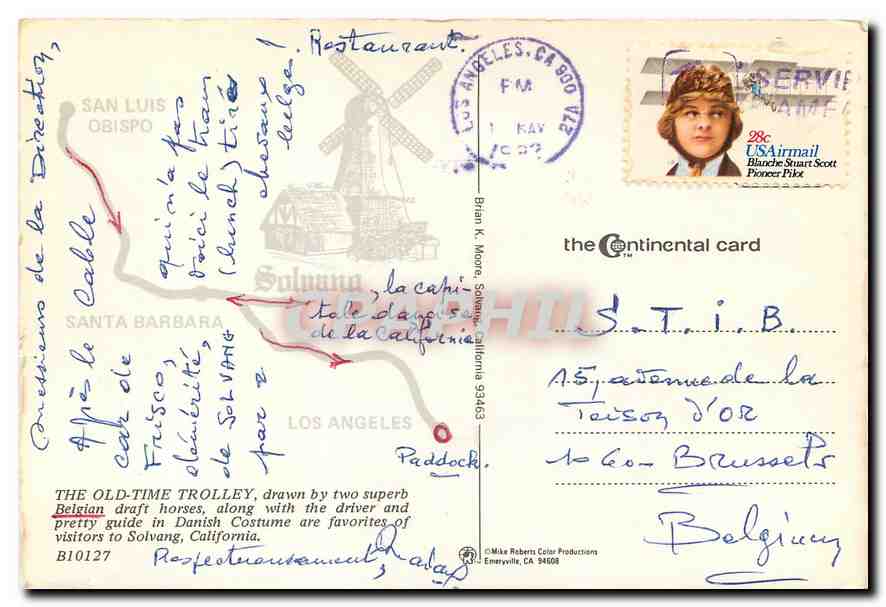 Messieurs de la Direction,
Après le Cable
car de
Frisco,
qui n'a pas
démérité,
voici le tram
de SOLVANG
(lunch) tiré
par 2
chevaux
belges !
Restaurant.
SAN LUIS
OBISPO
Solvang
, la capi-
tale danoise
de la California
SANTA BARBARA
LOS ANGELES
Paddock.
THE OLD-TIME TROLLEY, drawn by two superb
Belgian draft horses, along with the driver and
pretty guide in Danish Costume are favorites of
visitors to Solvang, California.
B10127
Respectueusement,
Brian K. Moore, Solvang, California 93463
©Mike Roberts Color Productions
Emeryville, CA 94608
LOS ANGELES, CA 900
PM
1 MAY
27A
28c
USAirmail
Blanche Stuart Scott
Pioneer Pilot
the Continental card
TM
S. T. I. B.
15, avenue de la
Toison d'OR
1060 - Brussels
Belgium